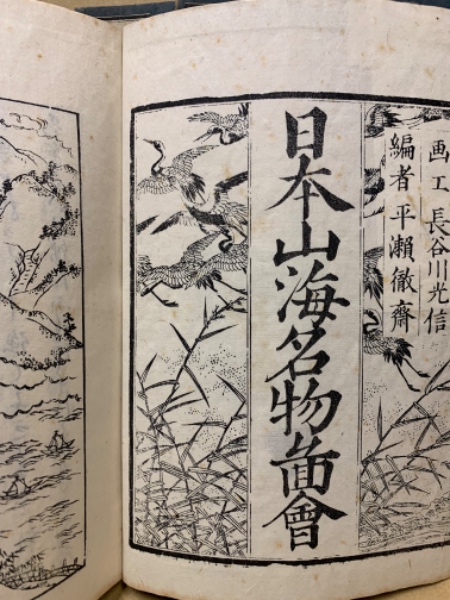 画工 長谷川光信
編者 平瀬徹齋
日本山海名物啚會